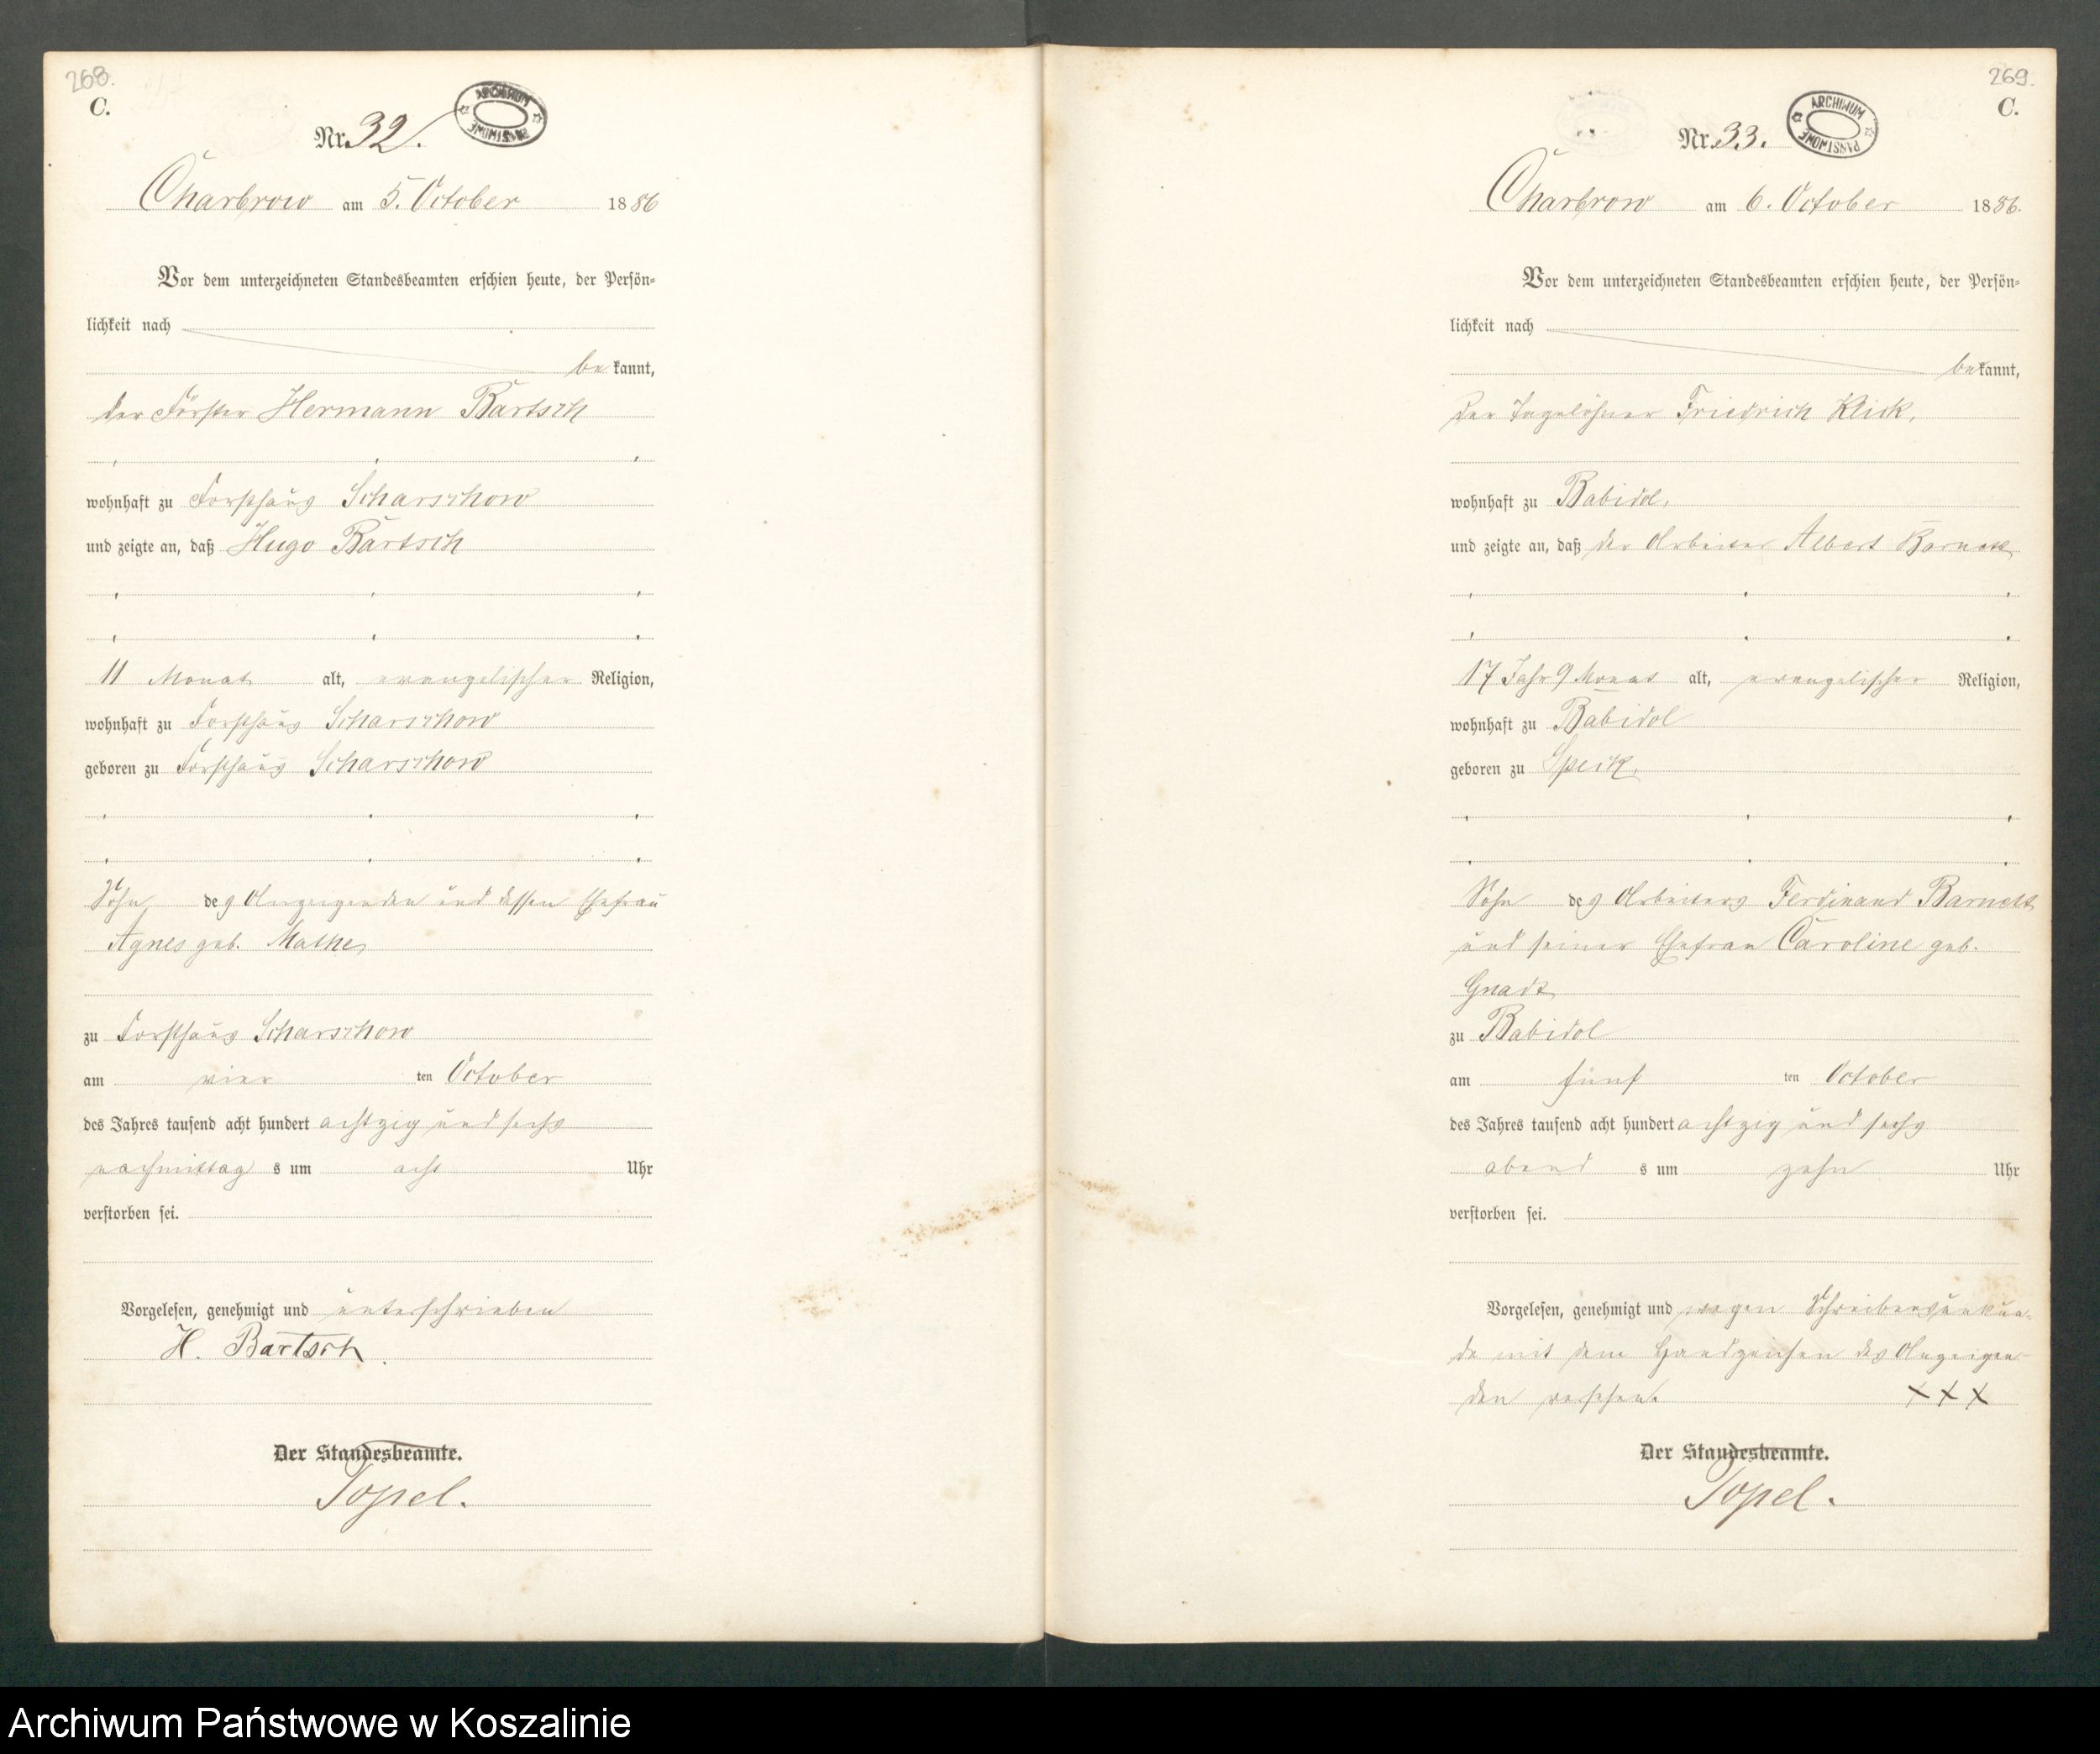 268.
C.
ARCHIWUM PAŃSTWOWE
Nr. 32.
Charbrow am 5. October 1886
Vor dem unterzeichneten Standesbeamten erschien heute, der Persön-
lichkeit nach
bekannt,
der Förster Hermann Bartsch
wohnhaft zu Forsthaus Scharschow
und zeigte an, daß Hugo Bartsch
11 Monat alt, evangelischer Religion,
wohnhaft zu Forsthaus Scharschow
geboren zu Forsthaus Scharschow
Sohn des Anzeigenden und dessen Ehefrau
Agnes geb. Mathe
zu Forsthaus Scharschow
am vier ten October
des Jahres tausend acht hundert achtzig und sechs
nachmittag s um acht Uhr
verstorben sei.
Vorgelesen, genehmigt und unterschrieben
H. Bartsch
Der Standesbeamte.
Topel.
269.
C.
ARCHIWUM PAŃSTWOWE
Nr. 33.
Charbrow am 6. October 1886.
Vor dem unterzeichneten Standesbeamten erschien heute, der Persön-
lichkeit nach
bekannt,
der Tagelöhner Friedrich Klick,
wohnhaft zu Babidol,
und zeigte an, daß der Arbeiter Albert Barnett
17 Jahr 9 Monat alt, evangelischer Religion,
wohnhaft zu Babidol
geboren zu Speck,
Sohn des Arbeiters Ferdinand Barnett
und seiner Ehefrau Caroline geb.
Gnadt
zu Babidol
am fünf ten October
des Jahres tausend acht hundert achtzig und sechs
abend s um zehn Uhr
verstorben sei.
Vorgelesen, genehmigt und wegen Schreibensunkun-
de mit dem Handzeichen des Anzeigen-
den versehen. XXX
Der Standesbeamte.
Topel.
Archiwum Państwowe w Koszalinie